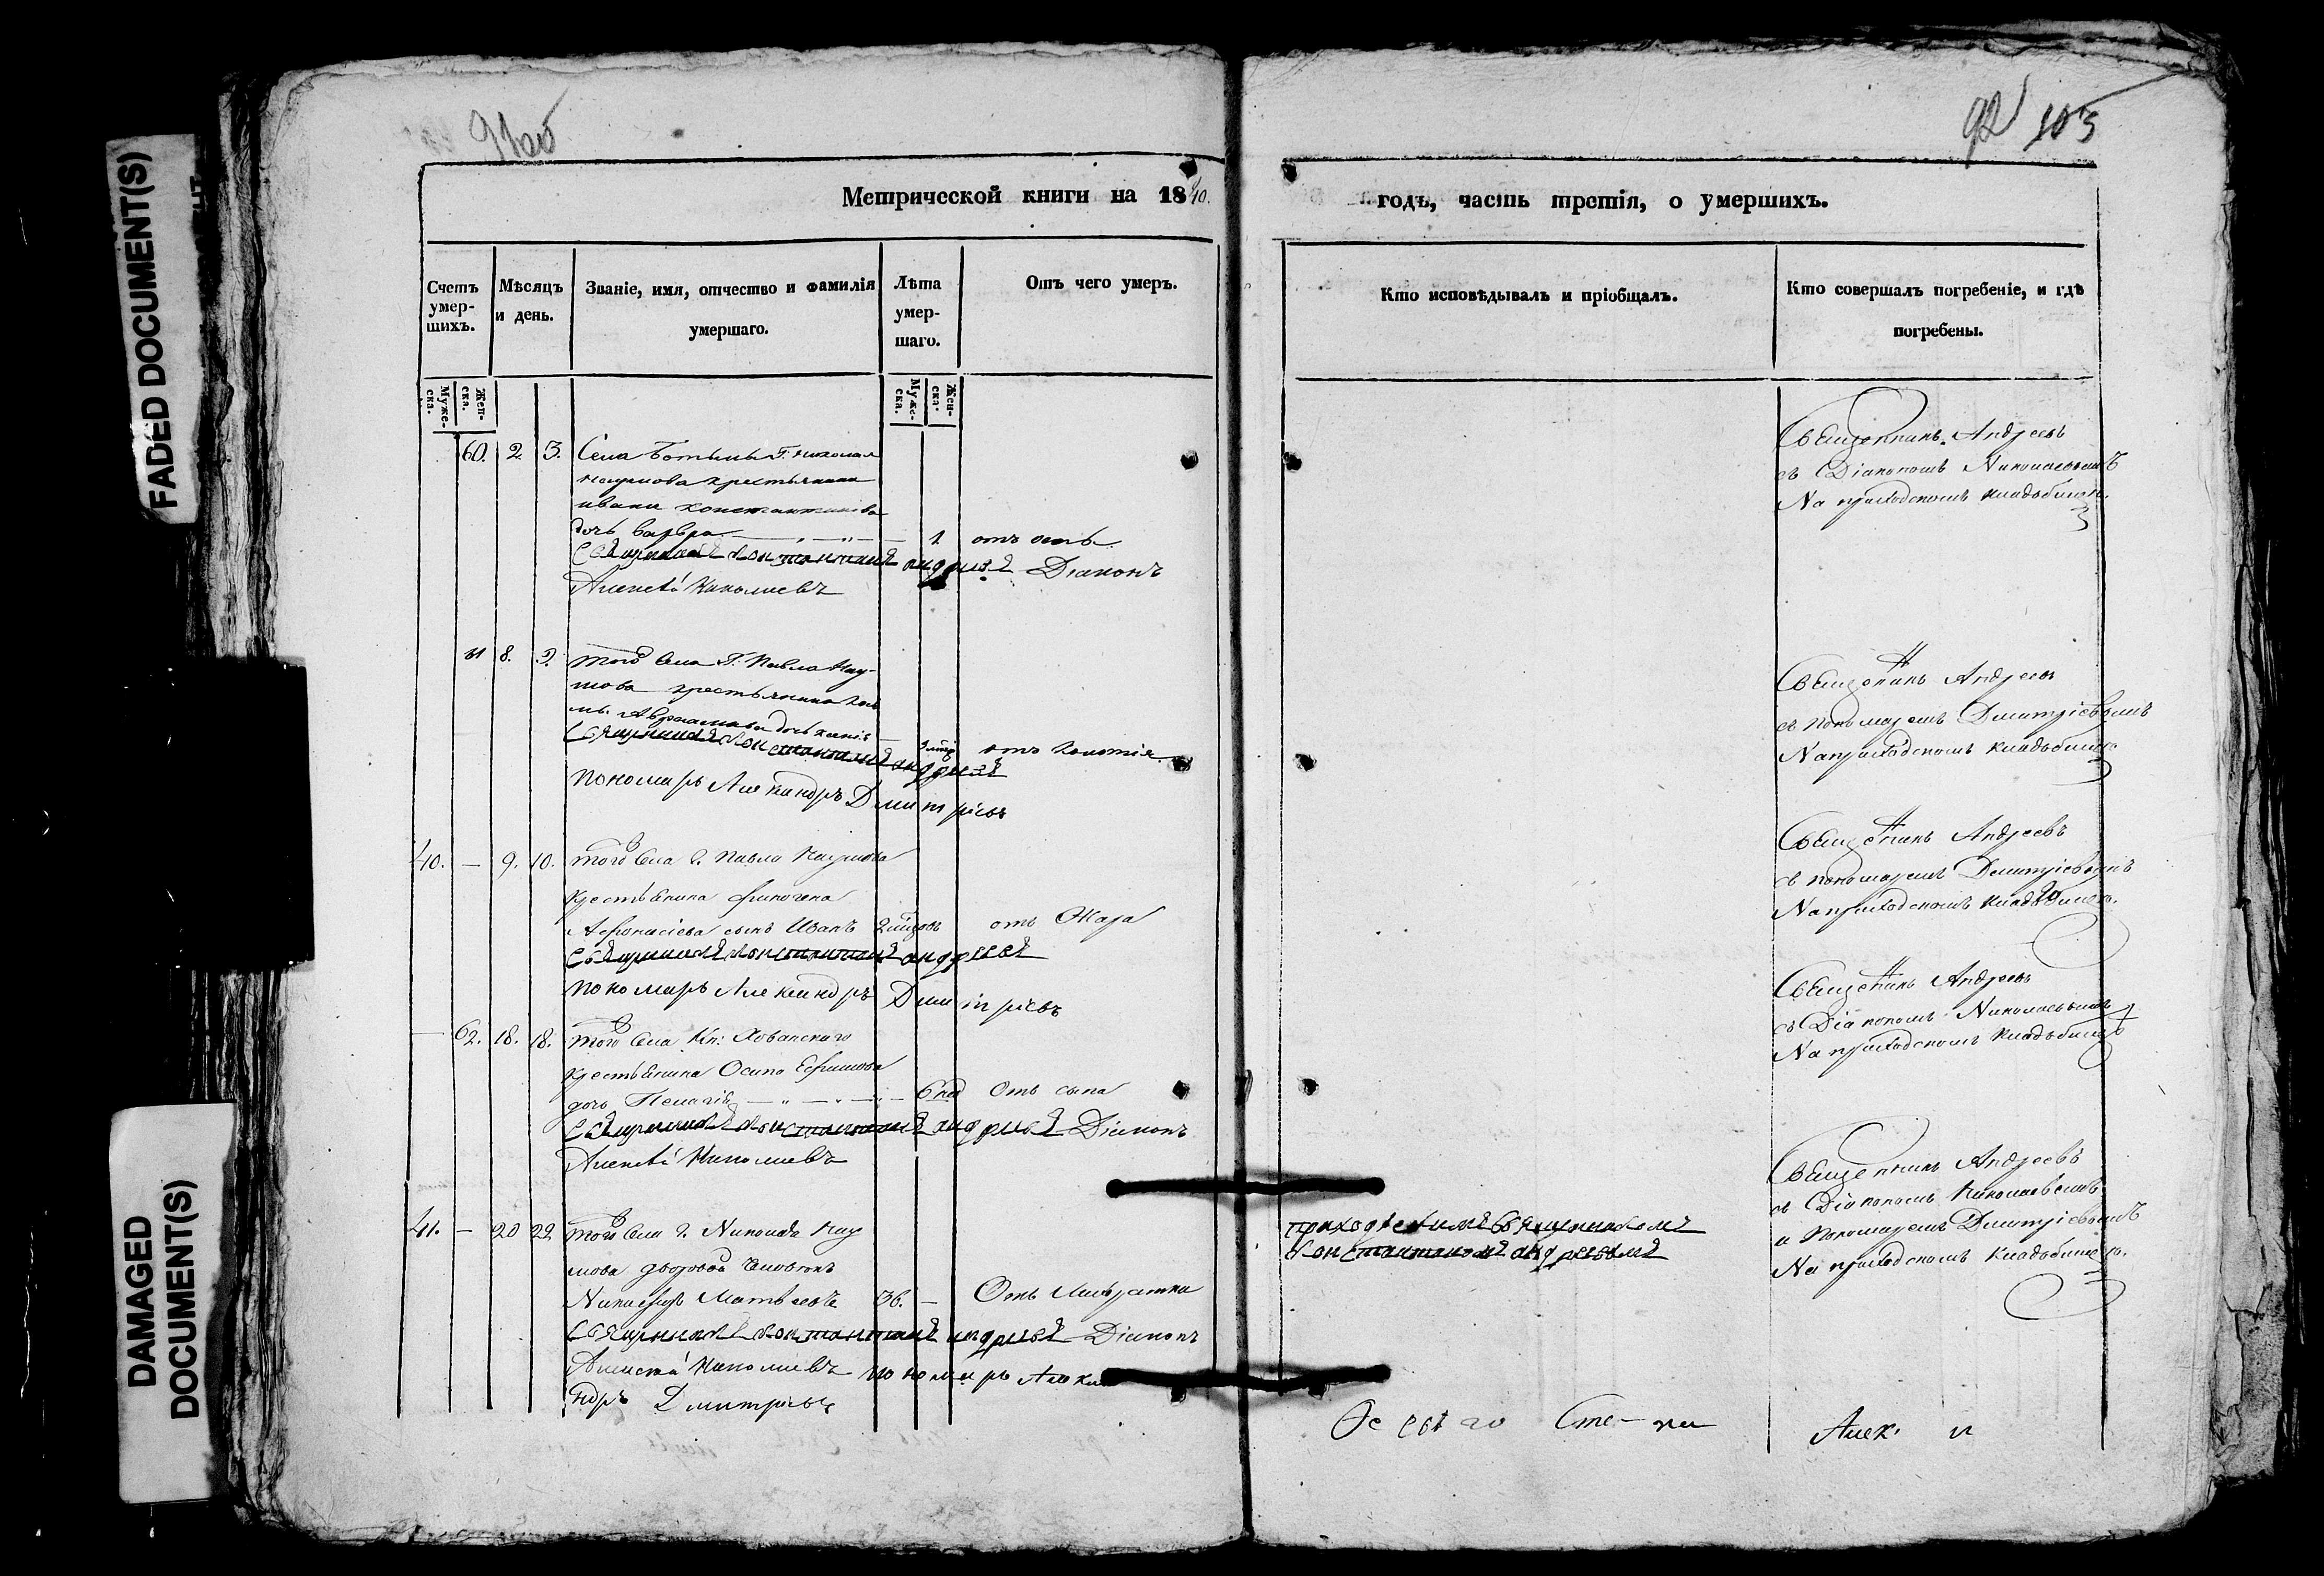 FADED DOCUMENT(S)
DAMAGED
DOCUMENT(S)
91об
Метрической книги на 1840.
Счетъ умер-шихъ.
Мѣсяцъ и день.
Званіе, имя, отчество и фамилія умершаго.
Лѣта умер-шаго.
Отъ чего умеръ.
Муже-ска.
Жен-ска.
Муже-ска.
Жен-ска.
60. 2. 3. Села Г. Николая
Наумова крестьянина
ивана константинова
дочь варвра 1 отъ оспы
Священникъ Константинъ андреевъ Діаконъ
Алексѣй Николаевъ
61 8. 9. того села Г. Павла Нау-
мова крестьянина
Авраамова дочь
Священникъ Константинъ андреевъ
пономарь Александръ Дмитріевъ
40. — 9. 10. того села г. Павла Наумова
крестьянина финогена
Афонасіева сынъ Иванъ 2 отъ Жара
Священникъ Константинъ андреевъ
пономарь Александръ Дмитріевъ
— 62. 18. 18. того села Кн: Хованскаго
крестьянина Осипа Ефимова
дочь Пелагія 6 нед Отъ сыпа
Священникъ Константинъ андреевъ Діаконъ
Алексѣй Николаевъ
41. — 20 22. того села г. Николая Нау
мова дворовой человѣкъ
Никифоръ Матвеевъ 36. —
Священникъ Константинъ андреевъ Діаконъ
Алексѣй Николаевъ пономарь Алекса
ндръ Дмитріевъ
92 105
годъ, часть третія, о умершихъ.
Кто исповѣдывалъ и пріобщалъ.
Кто совершалъ погребеніе, и гдѣ погребены.
Священникъ Андреевъ
съ Діакономъ Николаевымъ
На приходскомъ кладбищѣ.
Священникъ Андреевъ
съ пономаремъ Дмитріевымъ
На приходскомъ кладбищѣ
Священникъ Андреевъ
съ пономаремъ Дмитріевымъ
На приходскомъ кладбищѣ.
Священникъ Андреевъ
съ Діакономъ Николаевымъ
На приходскомъ кладбищѣ
приходскимъ священникомъ
Константиномъ андреевымъ
Священникъ Андреевъ
съ Діакономъ Николаевымъ
и Пономаремъ Дмитріевымъ
На приходскомъ кладбищѣ.
Алек. и